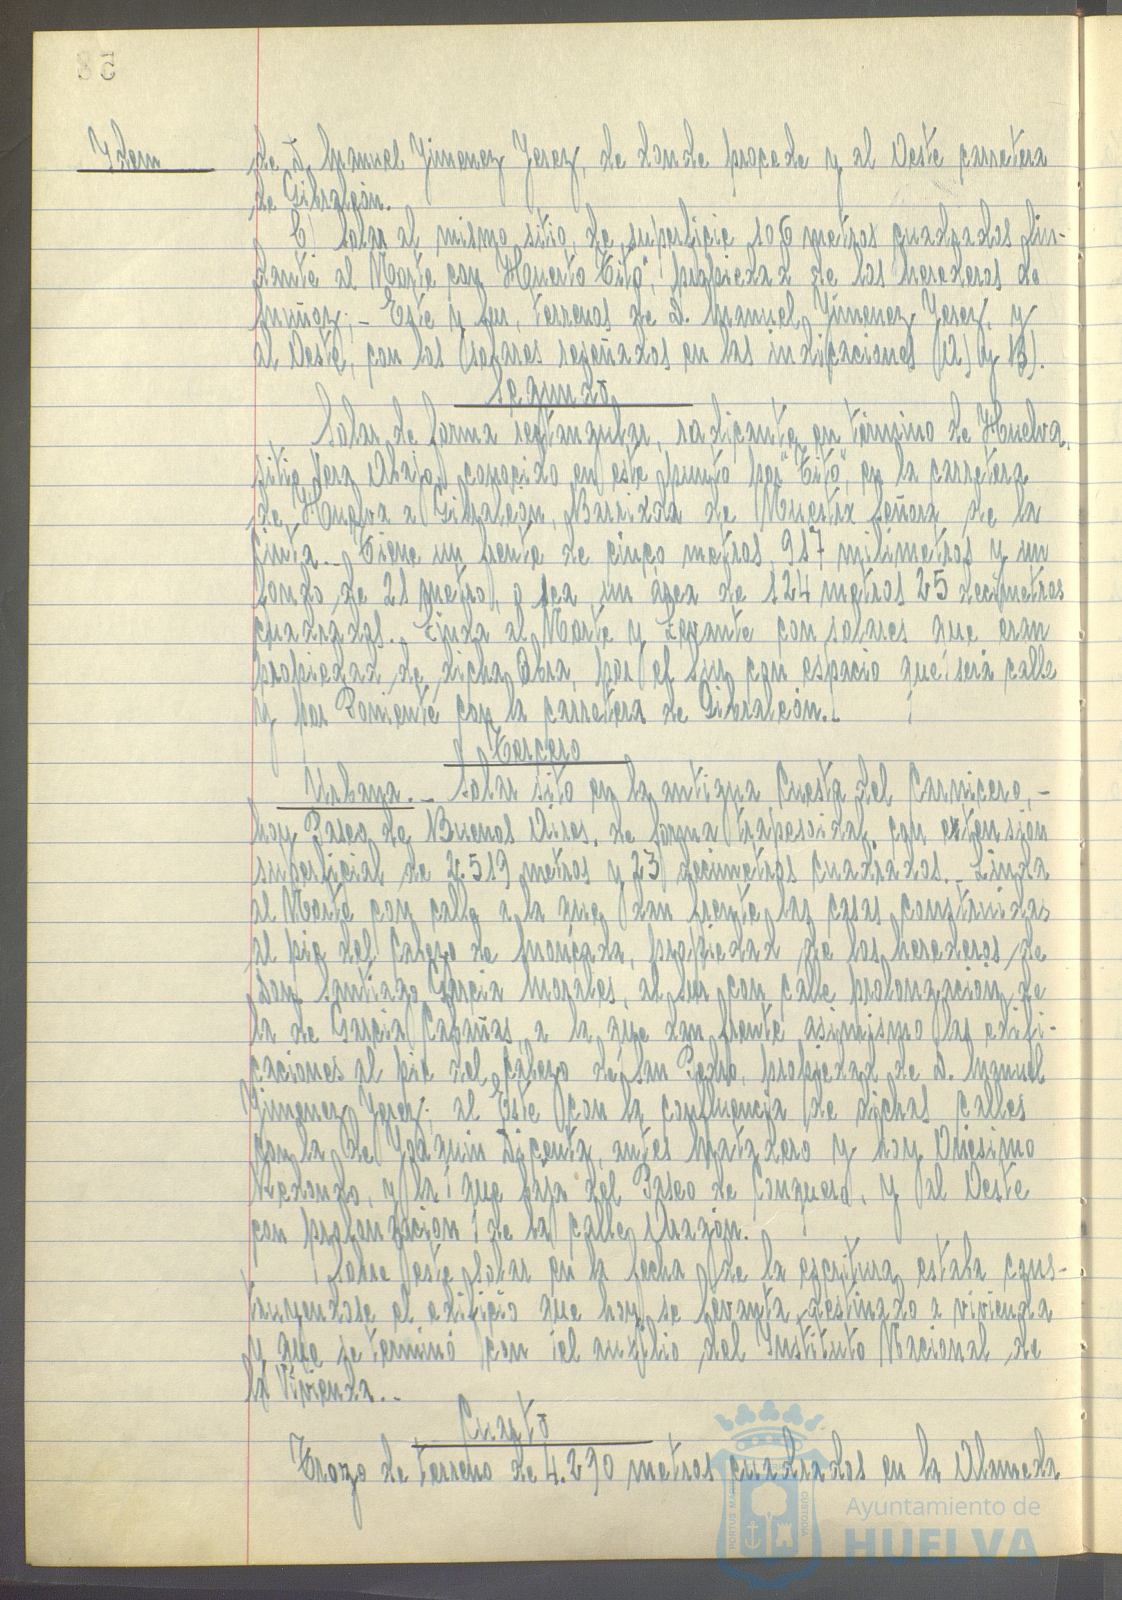 58
Ydem
de D. Manuel Jimenez Jerez, de donde procede y al Oeste carretera
de Gibraleón.
C) Solar al mismo sitio, de superficie 106 metros cuadrados lin-
dante al Norte con "Huerto Tito", propiedad de los herederos de
Muñoz; - Este y Sur, terrenos de D. Manuel Jimenez Jerez, y
al Oeste, con los solares reseñados en las indicaciones (A) y B).
Segundo
Solar de forma rectangular, radicante en término de Huelva,
sitio Vera Abajo, conocido en este punto por "Tito", en la carretera
de Huelva a Gibraleón, Barriada de Nuestra Señora de la
Cinta.- Tiene un frente de cinco metros, 917 milimetros y un
fondo de 21 metro, o sea un área de 124 metros 25 decimetros
cuadrados. Linda al Norte y Levante con solares que eran
propiedad de dicha Obra, por el Sur con espacio que será calle
y por Poniente con la carretera de Gibraleón.
Tercero
Urbana.- Solar sito en la antigua Cuesta del Carnicero, -
hoy Paseo de Buenos Aires, de forma trapesoidal, con extensión
superficial de 2.519 metros y 23 decimetros cuadrados.- Linda
al Norte con calle a la que dan frente las casas construidas
al pie del Cabezo de Moncada, propiedad de los herederos de
Don Santiago García Morales, al Sur con calle prolongación de
la de García Cabañas, a la que dan frente asimismo las edifi-
caciones al pie del Cabezo de San Pedro, propiedad de D. Manuel
Jimenez Jerez; al Este con la confluencia de dichas calles
con la de Joaquin Dicenta, antes Matadero y hoy Onesimo
Redondo, y la que baja del Paseo de Conquero, y al Oeste
con prolongación de la calle Aragón.
Sobre este solar en la fecha de la escritura estaba cons-
truyendose el edificio que hoy se levanta destinado a vivienda
y que se terminó con el auxilio del Instituto Nacional de
la Vivienda.-
Cuarto
Trozo de terreno de 4.290 metros cuadrados en la Alameda
PORTUS MARIS
CUSTODIA
Ayuntamiento de
HUELVA